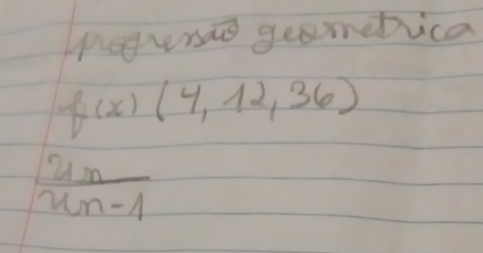 progressão geometrica
f(x) (4, 12, 36)
un
un-1